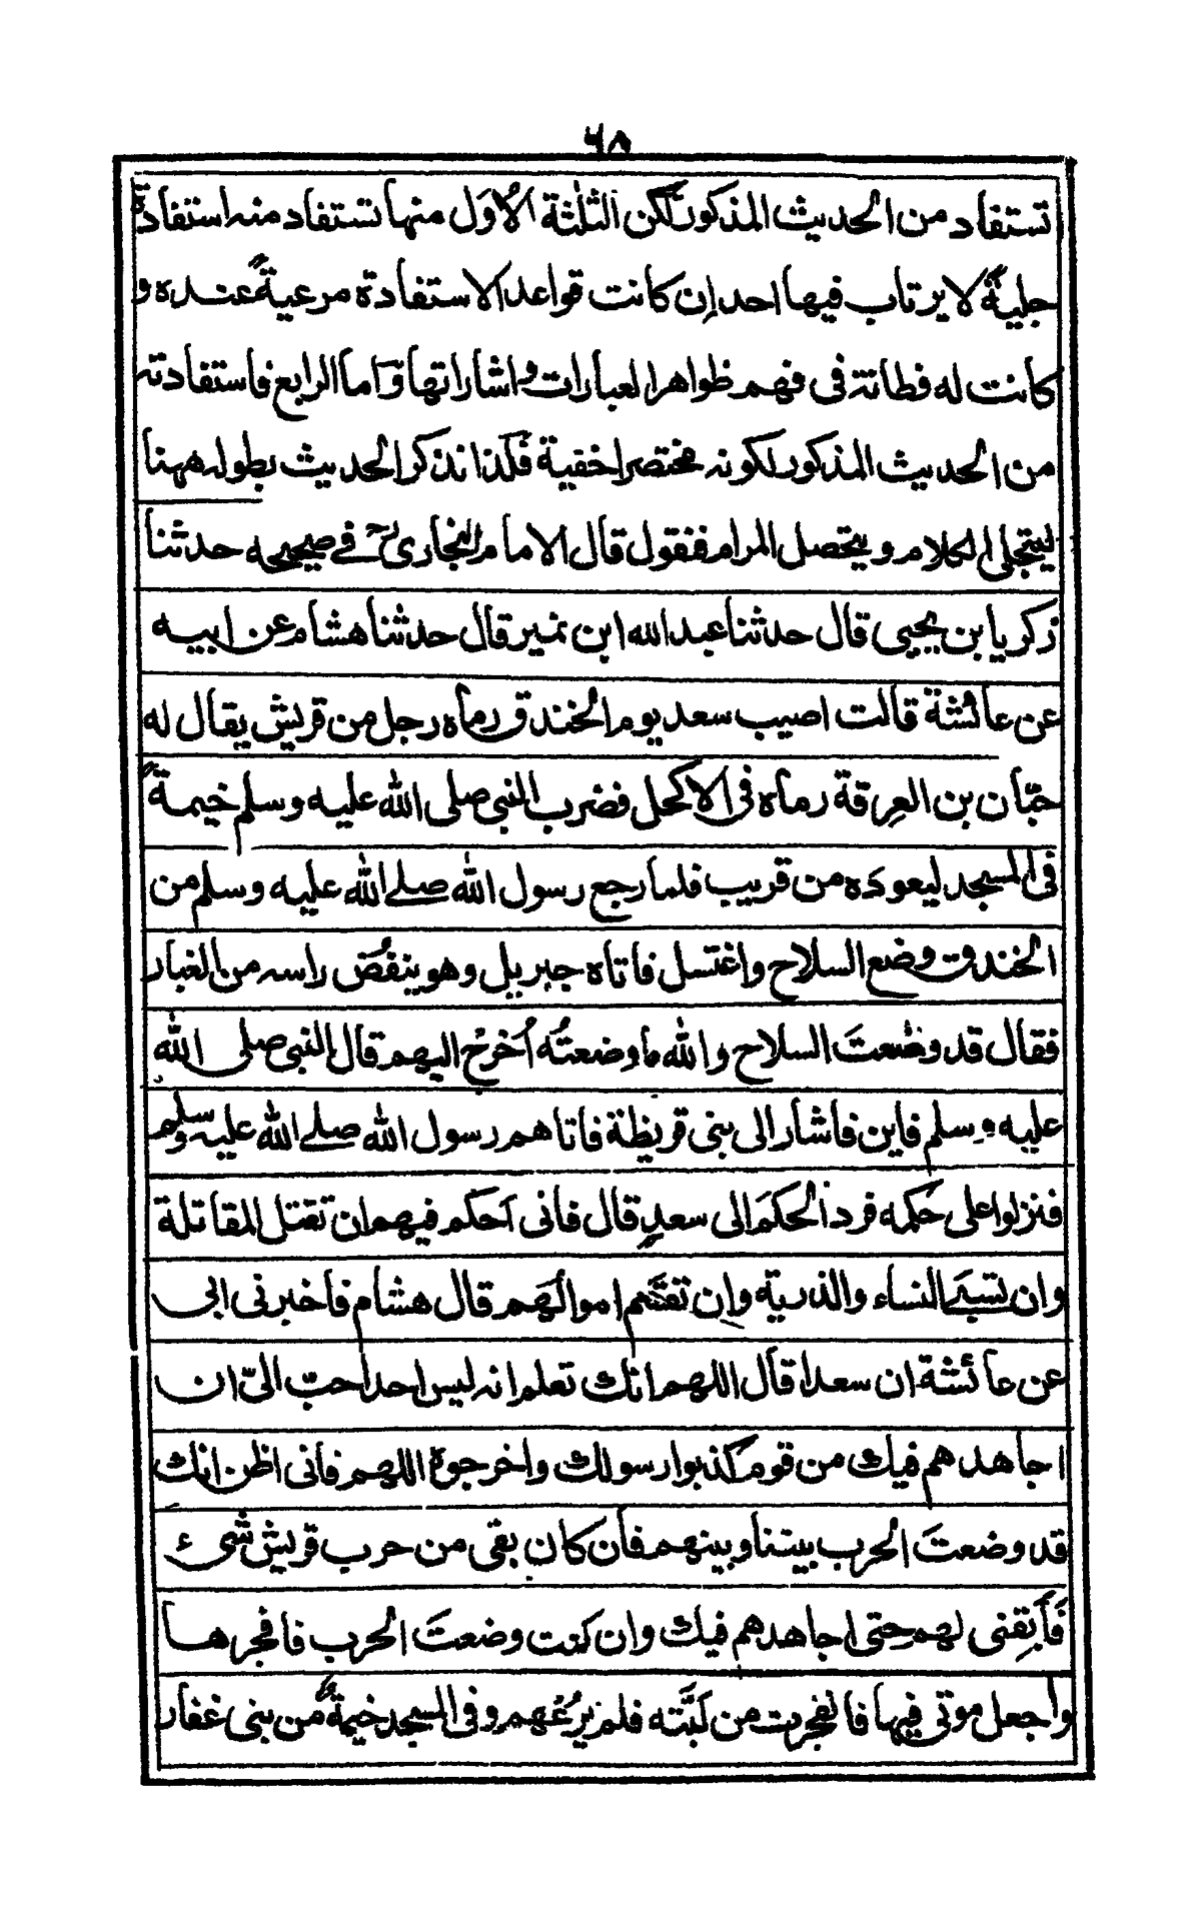 ٦٨
تستفاد من الحديث المذكور لكن الثلثة الأُوَل منها تستفاد منه استفادة
جليةً لا يرتاب فيها احد اِن كانت قواعد الاستفادة مرعيةً عنده و
كانت له فطانة فى فهم ظواهر العبارات و اشاراتها وَاما الرابع فاستفادته
من الحديث المذكور لكونه مختصرا خفية فَلذا نذكر الحديث بطوله ههنا
ليتجلى الكلام و يتحصل المرام فنقول قال الامام البخارى رح فے صحيحه حدثنا
زكريا بن يحيى قال حدثنا عبد الله ابن نمير قال حدثنا هشام عن ابيه
عن عائشة قالت اصيب سعد يوم الخندق رماه رجل من قريش يقال له
حبّان بن العرِقة رماه فى الاكحل فضرب النبى صلى الله عليه وسلم خيمةً
فى المسجد ليعودَه من قريب فلما رجع رسول الله صلے الله عليه وسلم من
الخندق وضع السلاح واغتسل فاتاه جبريل وهو ينفُض راسه من الغبار
فقال قد وضعتَ السلاح والله ما وضعتُه اُخرُج اليهم قال النبى صلى الله
عليه وسلم فاين فاشار الى بنى قريظة فاتاهم رسول الله صلے الله عليه وسلم
فنزلوا على حُكمه فرد الحكمَ الى سعدٍ قال فانى اَحكم فيهم ان تقتل المقاتلة
وان تسبَے النساء والذرية وان تقسَّم اموالُهم قال هشام فاخبرنى ابى
عن عائشة ان سعدا قال اللهم انك تعلم انه ليس احد احبّ الىّ ان
اجاهدهم فيك من قوم كذبوا رسولك واخرجوه اللهم فانى اظن انك
قد وضعتَ الحرب بيننا وبينهم فان كان بقى من حرب قريش شىء
فَاَبقِنى لهم حتى اجاهدهم فيك وان كنت وضعتَ الحرب فافجرها
واجعل موتى فيها فانفجرت من لَبَّته فلم يَرُعْهم و فى المسجد خيمةٌ من بنى غفار